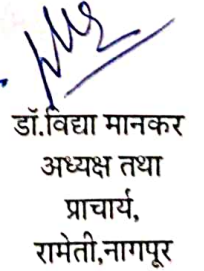 डॉ.विद्या मानकर
अध्यक्ष तथा
प्राचार्य,
रामेती,नागपूर